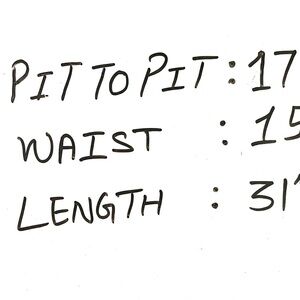 PIT TO PIT : 17
WAIST : 15
LENGTH : 31"